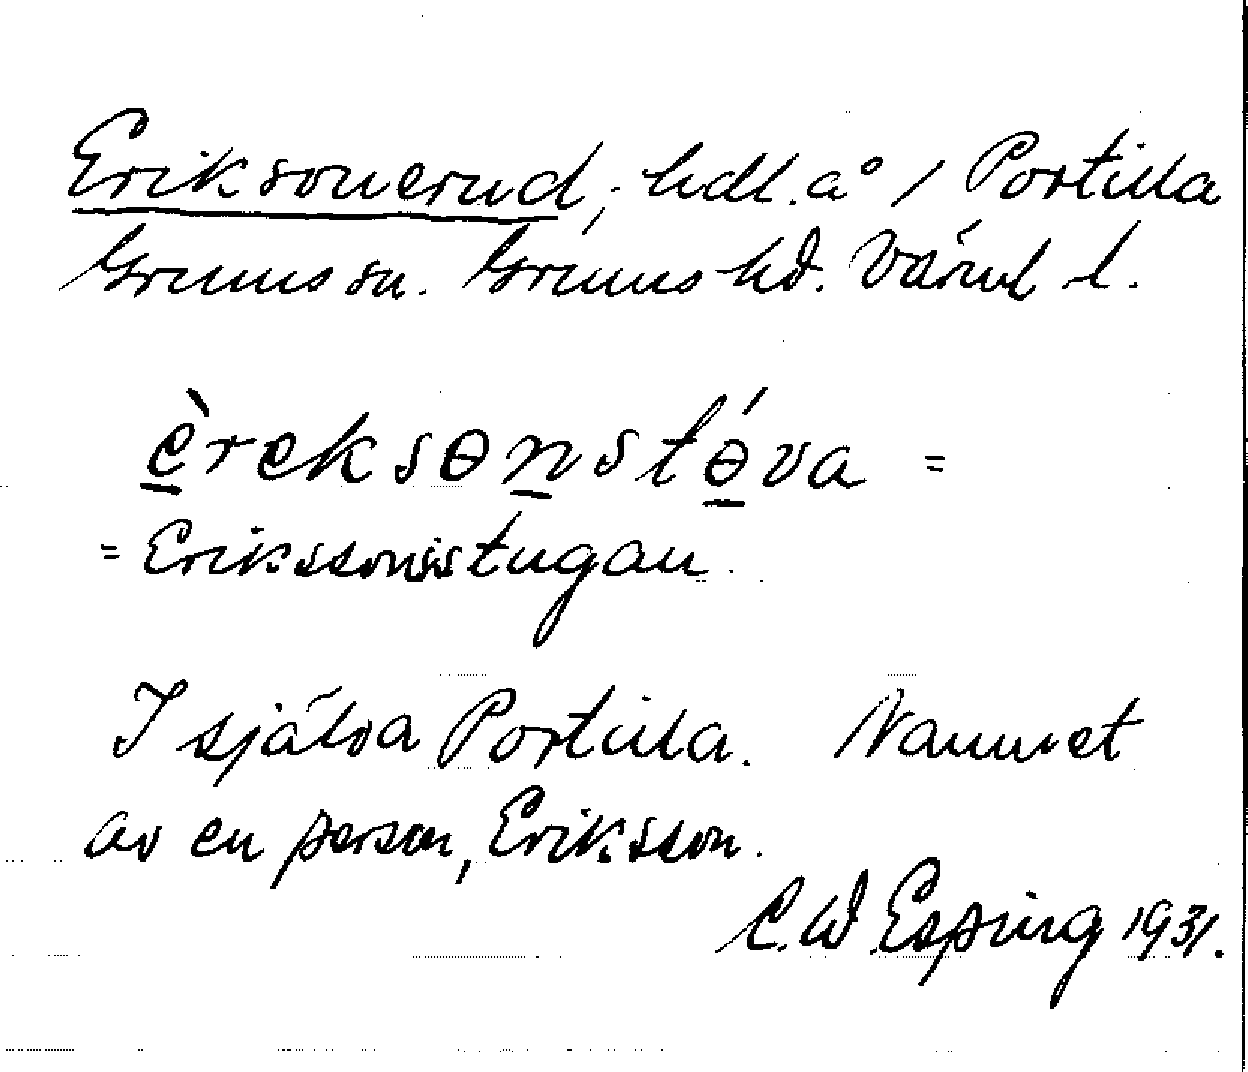 Eriksonerud; hdl. a° / Portilla
Grums sn. Grums hd. Värml l.
èreksɵnstɵ́va =
= Erikssonsstugan.
I själva Portilla. Namnet
av en person, Eriksson.
C. W. Esping 1931.